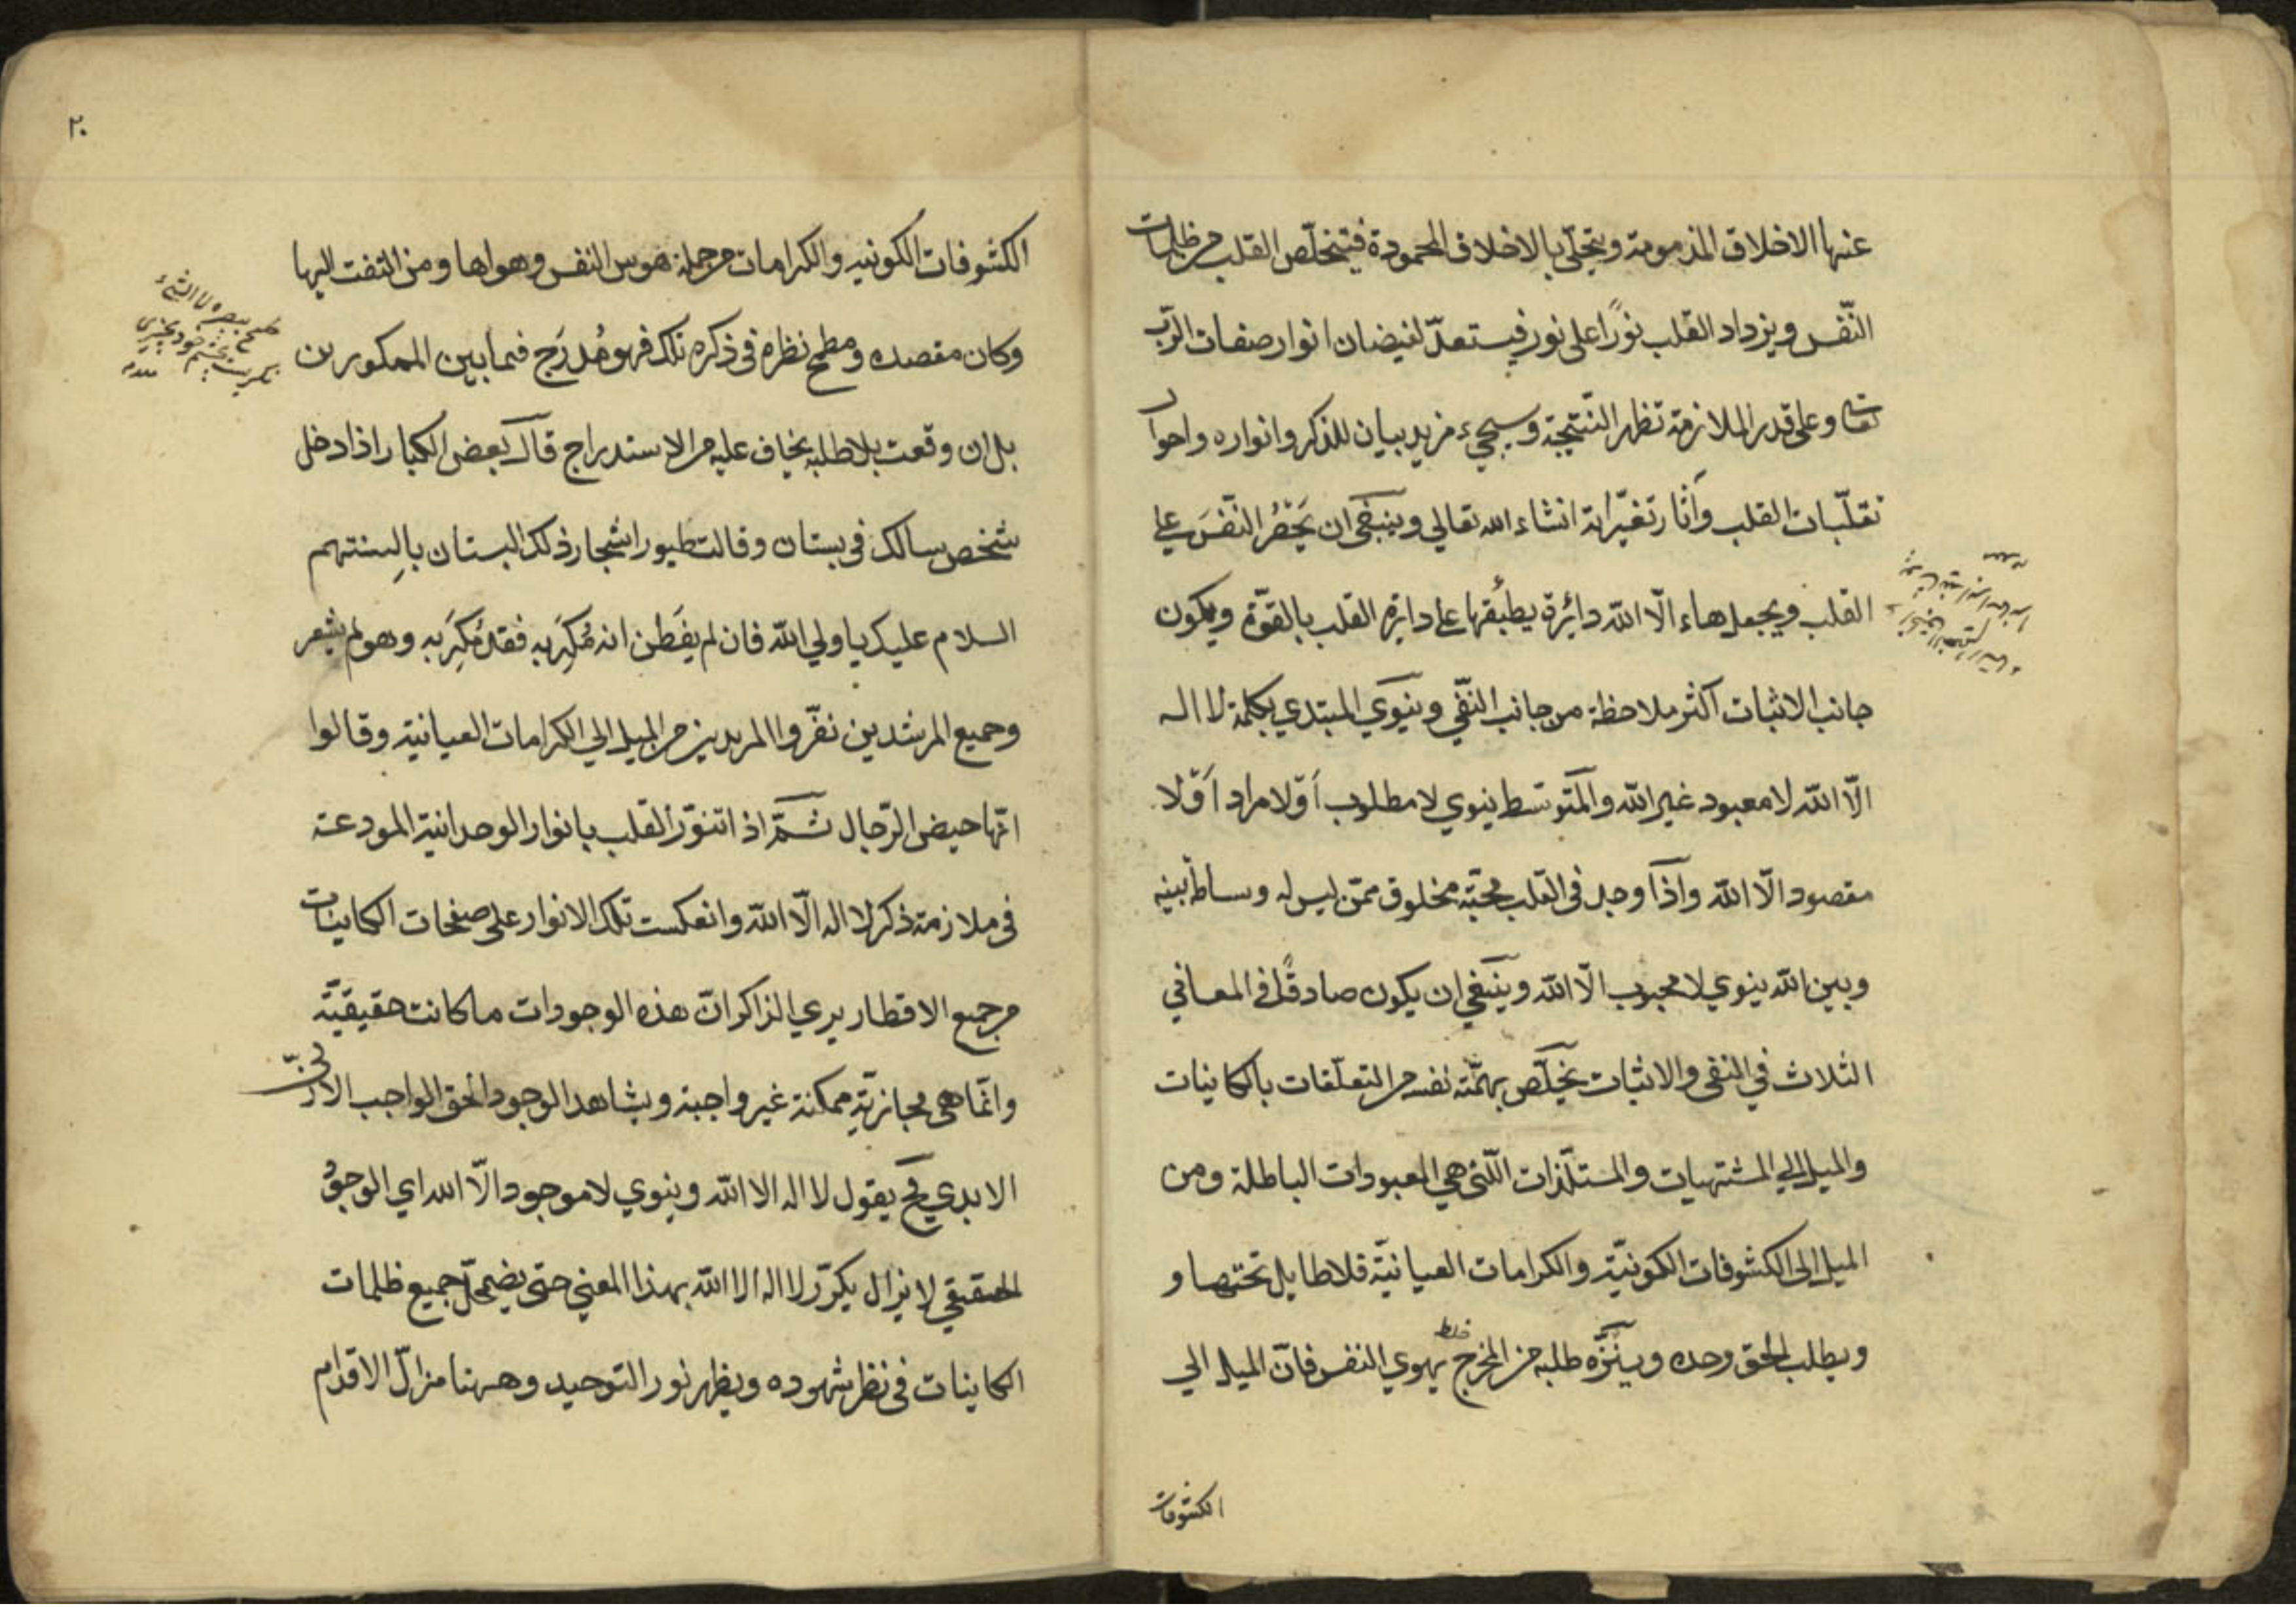 عنها الاخلاق المذمومة ويتحلّى بالاخلاق المحمودة فيتخلّص القلب من ظلمات
النّفس ويزداد القلب نورًا على نور فيستعدّ لفيضان انوار صفات الرّبّ
تعا وعلى قدر الملازمة تظهر النّتيجة وسيجيء مزيد بيان للذكر وانواره واحوال
تقلّبات القلب وآثار تغيّراته انشاء الله تعالي وينبغي ان يَحْصُر النّفَسَ علي
القلب ويجعل هاء الّا الله دائرة يطبقها علي دايرة القلب بالقوّة ويكون
جانب الاثبات اكثر ملاحظة من جانب النّفي وينوي المبتدي بكلمة لا اله
الّا الله لا معبود غير الله والمتوسّط ينوي لا مطلوب اَوْ لا مراد اَوْ لا
مقصود الّا الله واذا وجد في القلب محبّة مخلوق ممّن ليس له وساطة بينه
وبين الله ينوي لا محبوب الّا الله وينبغي ان يكون صادقًا في المعاني
الثلاث في النفي والاثبات يخلّص بهمّته نفسه من التعلّقات بالكاينات
والميل الي المشتهيات والمستلّذات الّتي هي المعبودات الباطلة ومن
الميل الى الكشوفات الكونيّة والكرامات العيانيّة فلا طايل تحتها و
ويطلب الحق وحده وينزّه طلبه من المزج خلط بهوي النفس فانّ الميل الي
الكشوفات
٢٠
الكشوفات الكونيه والكرامات من جملة هوس النفس وهواها ومن التفت اليها
وكان مقصده ومطمح نظره في ذكره تلك فهو مُدرَج فيما بين الممكورين
بل ان وقعت بلا طلبه يخاف عليه من الاستدراج قال بعض الكبار اذا دخل
شخص سالك في بستان وقالت طيور اشجار ذلك البستان بالسنتهم
السلام عليك يا ولي الله فان لم يفطن انه مُكِرَ به فقد مُكِرَ به وهو لم يشعر
وجميع المرشدين نفّروا المريدين من الميل الي الكرامات العيانية وقالوا
انّها حيض الرّجال ثمّ اذا تنوّر القلب بانوار الوحدانية المودعة
في ملازمة ذكر لا اله الّا الله وانعكست تلك الانوار على صفحات الكاينات
من جميع الاقطار يري الذاكر انّ هذه الوجودات ما كانت حقيقيّة
وانّما هي مجازيّة ممكنة غير واجبة ويشاهد الوجود الحق الواجب الازليّ
الابدي فح يقول لا اله الا الله وينوي لا موجود الّا الله اي الوجود
الحقيقي لا يزال يكرّر لا اله الا الله بهذا المعني حتى يضمحلّ جميع ظلمات
الكاينات في نظر شهوده ويظهر نور التوحيد وههنا مزالّ الاقدام